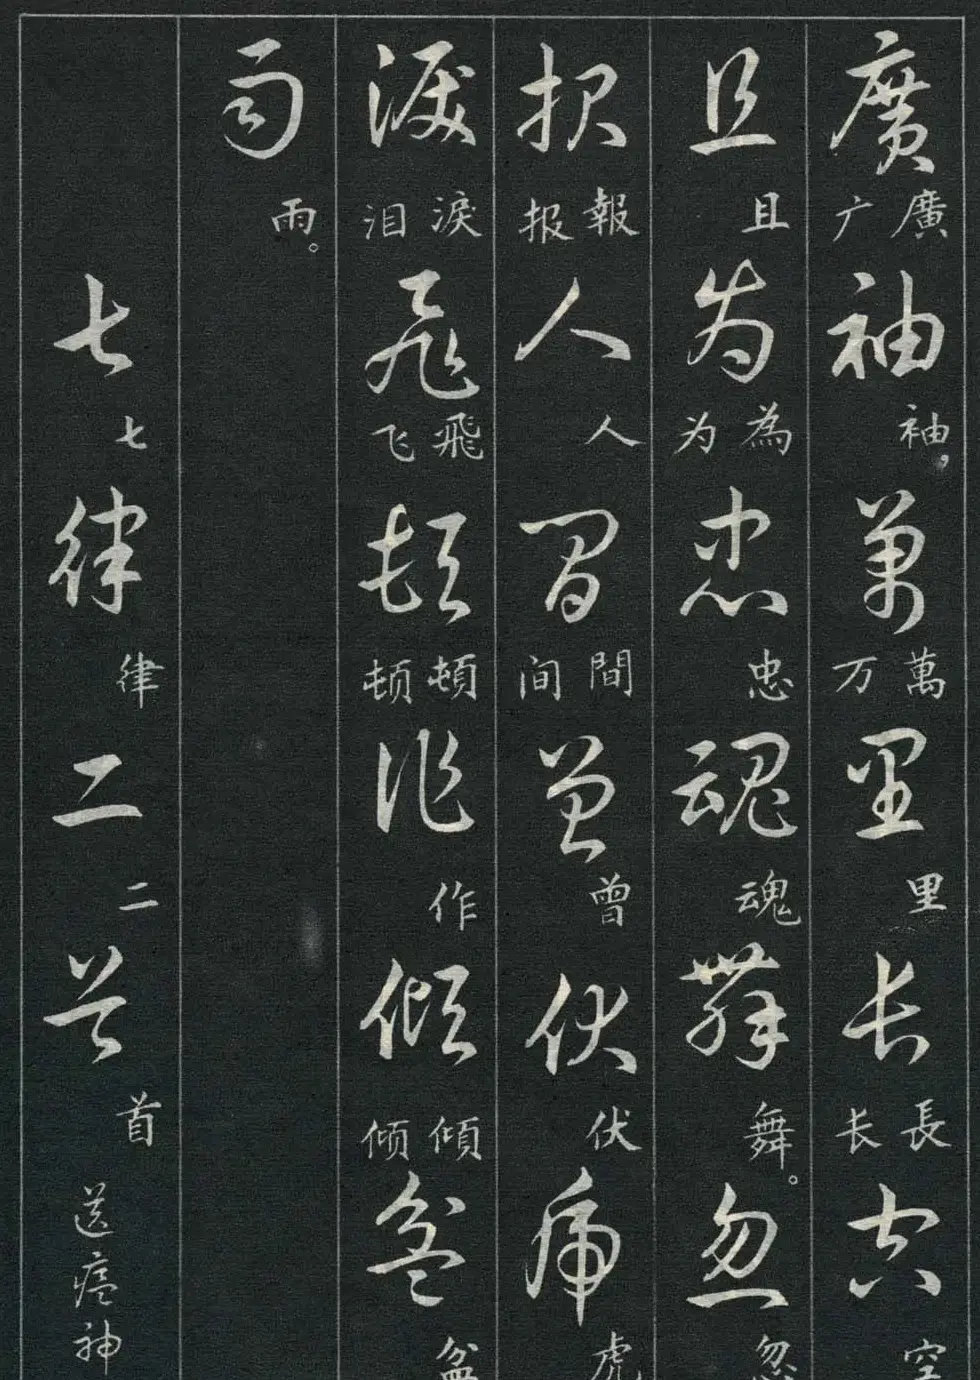 廣袖，萬里長空
廣广 袖， 萬万 里 長长 空
且為忠魂舞。忽
且 為为 忠 魂 舞。 忽
報人間曾伏虎
報报 人 間间 曾 伏 虎
淚飛頓作傾盆
淚泪 飛飞 頓顿 作 傾倾 盆
雨
雨。
七律二首
七 律 二 首 送瘟神